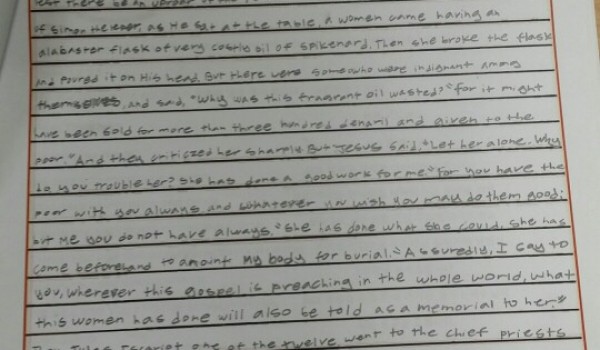 lest there be an uproar of the
of Simon the leper, as He sat at the table, a women came having an
alabaster flask of very costly oil of spikenard. Then she broke the flask
and poured it on His head. But there were some who were indignant among
themselves, and said, "Why was this fragrant oil wasted? "for it might
have been sold for more than three hundred denarii and given to the
poor." And they criticized her sharply. But Jesus said, "Let her alone. Why
do you trouble her? She has done a good work for me. "For you have the
poor with you always, and whatever you wish you may do them good;
but me you do not have always. "She has done what she could, She has
come beforehand to anoint My body for burial. "Assuredly, I say to
you, wherever this gospel is preaching in the whole world, what
this women has done will also be told as a memorial to her."
Then Judas Iscariot one of the twelve, went to the chief priests